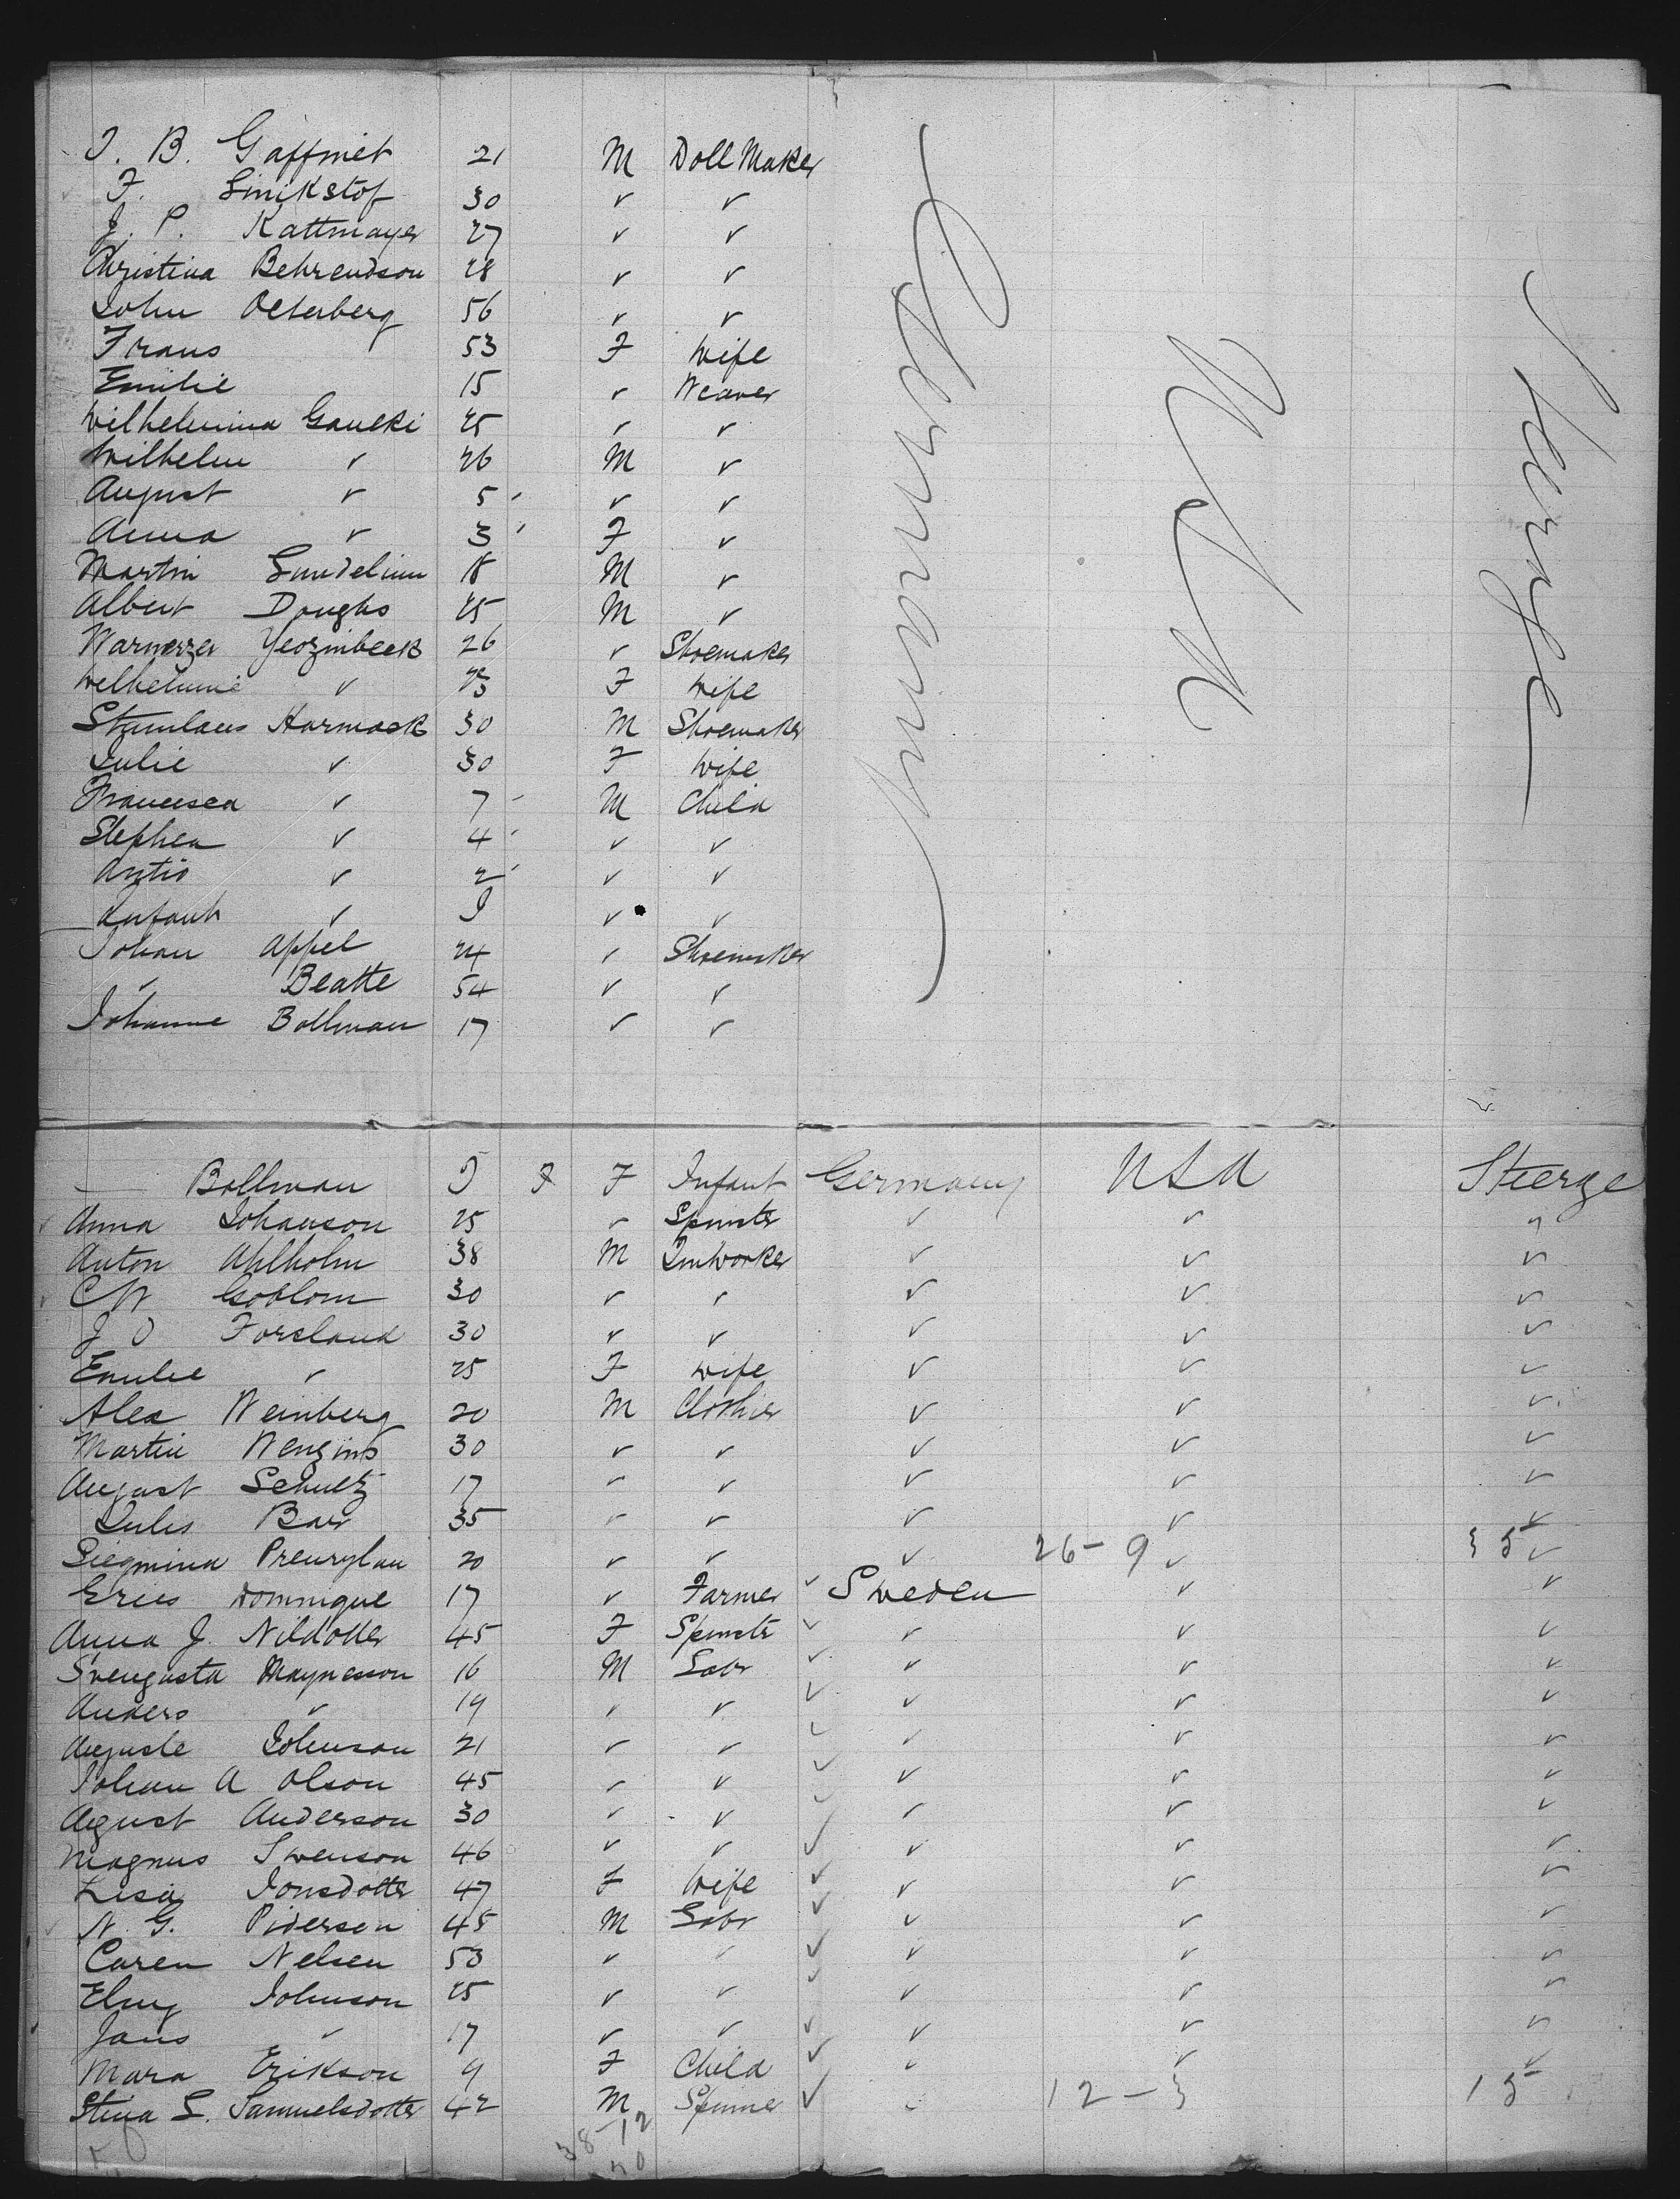 J. B. Gaffmet 21 M Doll Maker
F. Linikstof 30 ✓ ✓
J. P. Kattmayer 27 ✓ ✓
Christina Behrendson 28 ✓ ✓
John Oeterberg 56 ✓ ✓
Frans 53 F Wife
Emilie 15 ✓ Weaver
Wilhelmina Gaucki 25 ✓ ✓
Wilhelm ✓ 26 M ✓
August ✓ 5 ✓ ✓
Anna ✓ 3 F ✓
Martin Lundelium 18 M ✓
Albert Doughs 25 M ✓
Warnerzer Yeozmbeck 26 ✓ Shoemaker
Welhelmie ✓ 23 F Wife
Stanilaus Harmack 30 M Shoemaker
Julie ✓ 30 F Wife
Francisca ✓ 7 M Child
Stephen ✓ 4 ✓ ✓
Antio ✓ 2 ✓ ✓
Infant ✓ I ✓ ✓
Johan Appel 24 ✓ Shoemaker
✓ Beatte 54 ✓ ✓
Johanne Bollman 17 ✓ ✓
Germany
U S A
Steerage
— Bollman I F F Infant Germany USA Steerge
Anna Johanson 25 ✓ Spinster ✓ ✓ ✓
Anton Ahlholm 38 M Tinworker ✓ ✓ ✓
C W Goblom 30 ✓ ✓ ✓ ✓ ✓
J O Forsland 30 ✓ ✓ ✓ ✓ ✓
Emilie ✓ 25 F Wife ✓ ✓ ✓
Alex Weinberg 20 M Clothier ✓ ✓ ✓
Martin Wengins 30 ✓ ✓ ✓ ✓ ✓
August Schultz 17 ✓ ✓ ✓ ✓ ✓
Julis Bar 35 ✓ ✓ ✓ ✓ ✓
Siegmina Prenrylau 20 ✓ ✓ ✓ 26-9 ✓ 35 ✓
Erics Domnique 17 ✓ Farmer ✓ Sweden ✓ ✓
Anna J. Nildotter 45 F Spinstr ✓ ✓ ✓ ✓
Svengusta Maynesson 16 M Labr ✓ ✓ ✓ ✓
Anders ✓ 19 ✓ ✓ ✓ ✓ ✓ ✓
Auguste Johnson 21 ✓ ✓ ✓ ✓ ✓ ✓
Johan A Olson 45 ✓ ✓ ✓ ✓ ✓ ✓
Agust Anderson 30 ✓ ✓ ✓ ✓ ✓ ✓
Magnus Swenson 46 ✓ ✓ ✓ ✓ ✓ ✓
Lisa Jonsdotter 47 F Wife ✓ ✓ ✓ ✓
N. G. Pidersen 45 M Labr ✓ ✓ ✓ ✓
Caren Nelsen 53 ✓ ✓ ✓ ✓ ✓ ✓
Elny Johnson 25 ✓ ✓ ✓ ✓ ✓ ✓
Jans ✓ 17 ✓ ✓ ✓ ✓ ✓ ✓
Mara Erikson 9 F Child ✓ ✓ ✓ ✓
Stina L. Samuelsdotter 42 M Spinner ✓ ✓ 12-3 15
38-12
50